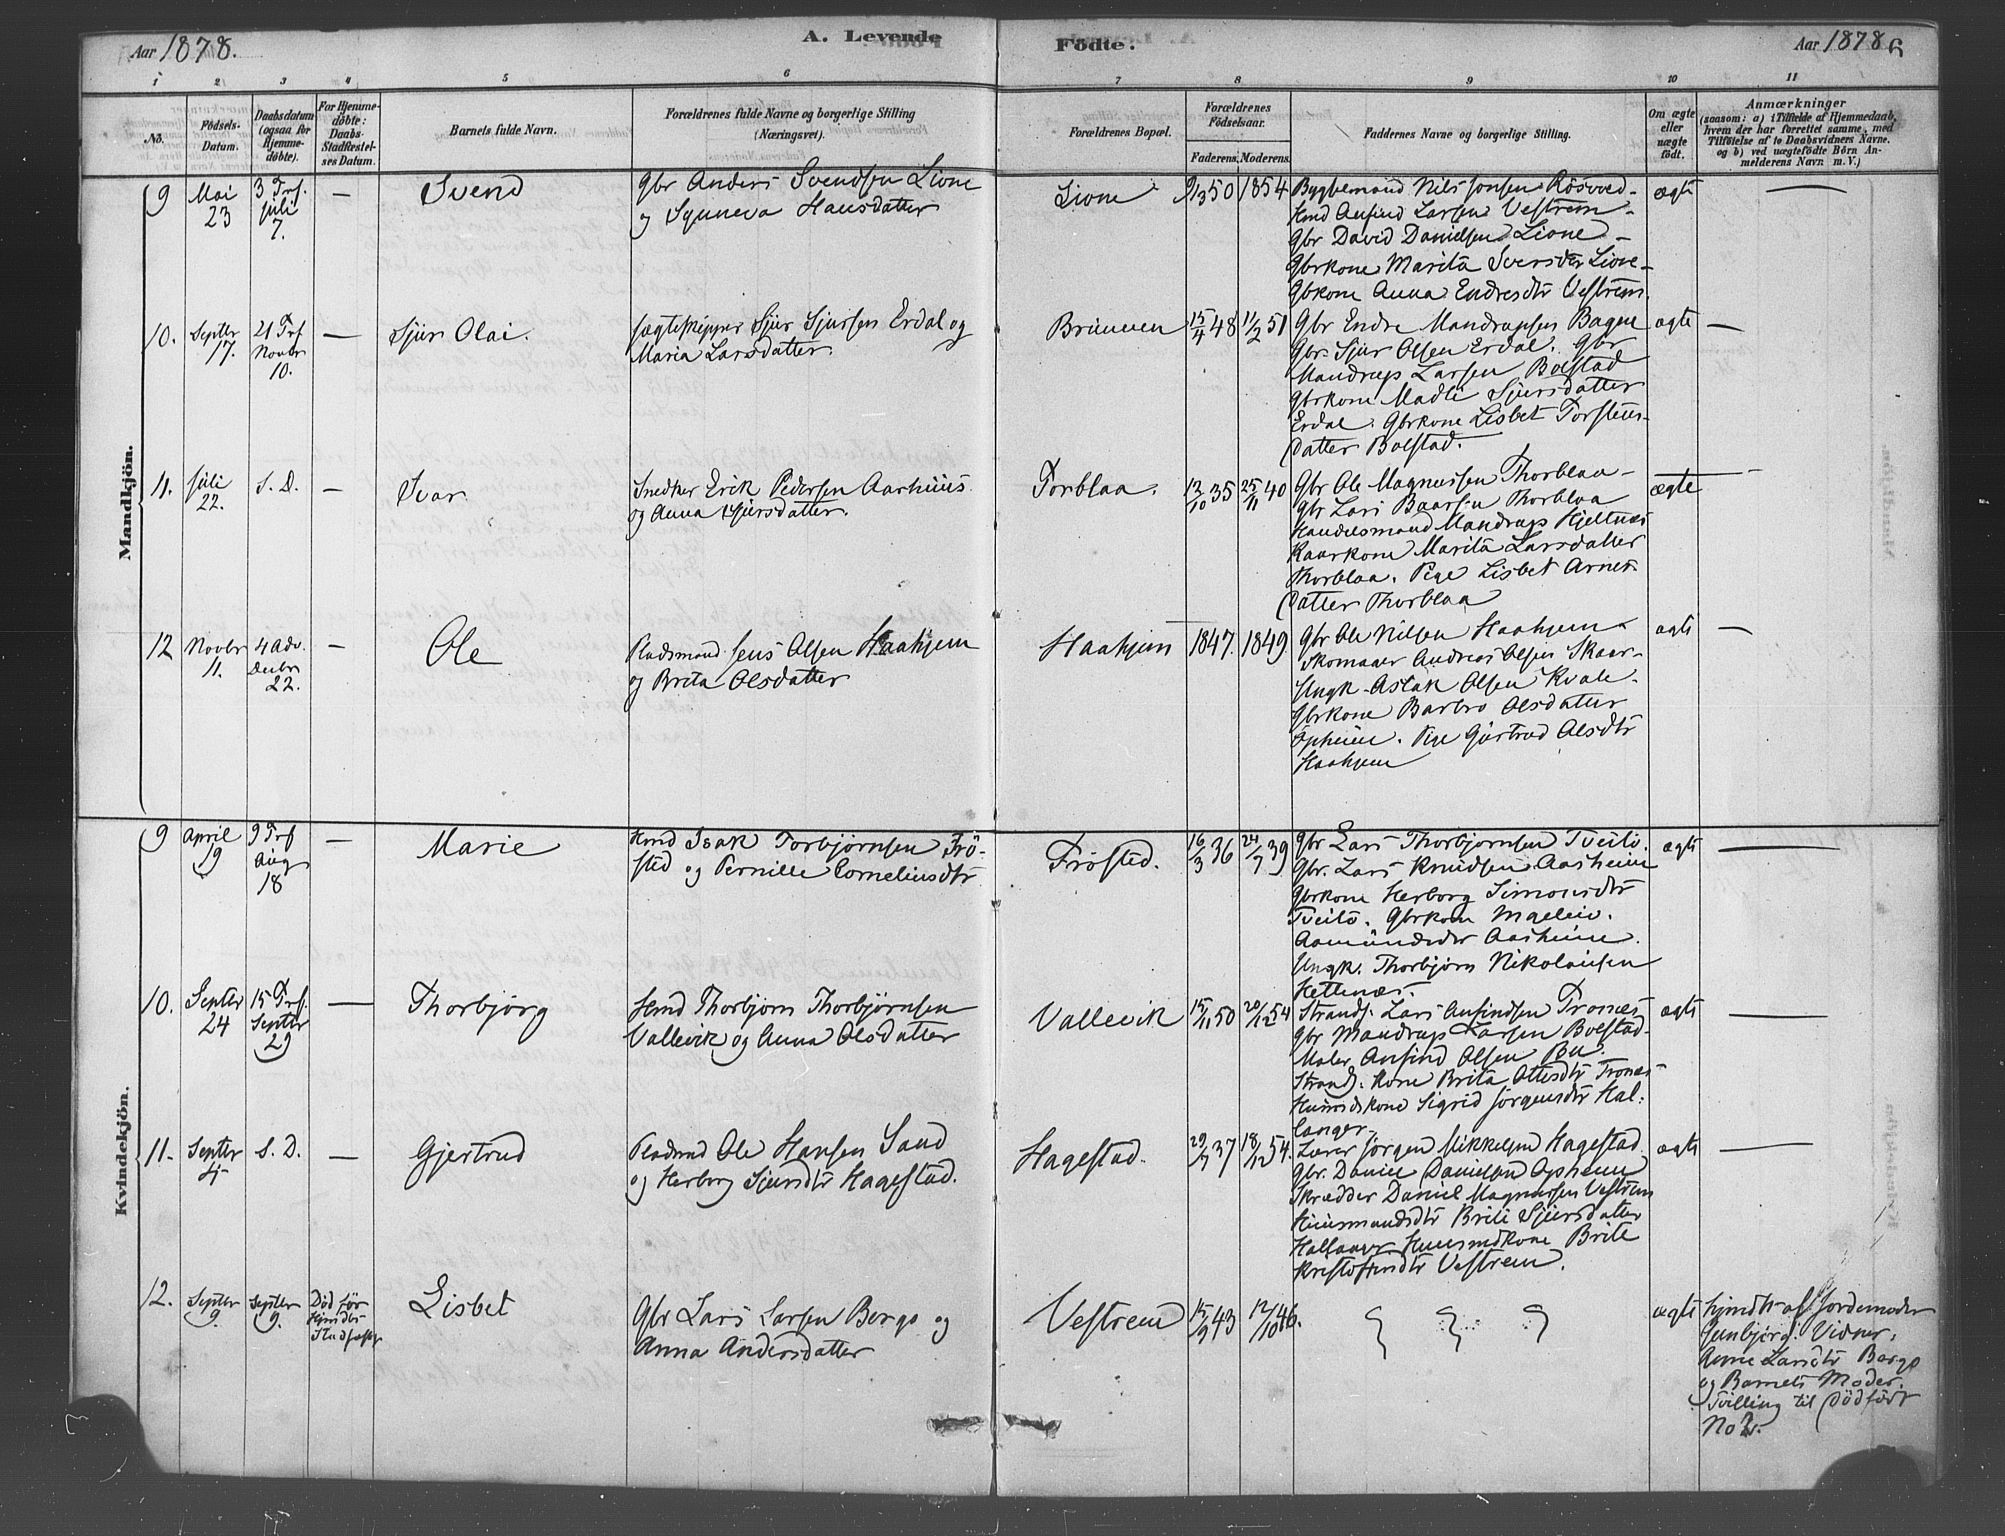 Aar 1878.
A. Levende
Fødte.
Aar 1878
6
1 2 3 4 5 6 7 8 9 10 11
No.
Fødsels-
Datum.
Daabsdatum
(ogsaa for
Hjemme-
døbte).
For Hjemme-
døbte:
Daabs-
Stadfæstel-
ses Datum.
Barnets fulde Navn.
Forældrenes fulde Navne og borgerlige Stilling
(Næringsvei).
Forældrenes Bopæl.
Forældrenes
Fødselsaar.
Faderens. Moderens.
Faddernes Navne og borgerlige Stilling.
Om ægte
eller
uægte
født.
Anmærkninger
(saasom: a) i Tilfælde af Hjemmedaab,
hvem der har forrettet samme, med
Tilføielse af to Daabsvidners Navne.
og b) ved uægtefødte Børn An-
melderens Navn m. V.)
Mandkjön.
9 Mai
23
3 Trf.
Juli
7.
—
Svend
Gbr Anders Svendsen Lione
og Synneva Hansdatter
Lione
9/13 50
1854
Bygdemand Nils Jonsen Røsvad-
Hmd Anfind Larsen Vestrem-
Gbr David Danielsen Lione-
Gbrkone Marita Sversdtr Lione-
Gbkone Anna Endresdtr Vestrem.
ægte
—
10. Septbr
17.
21 Trf
Novbr
10.
—
Sjur Olai.
Jægteskipper Sjur Sjursen Erdal og
Maria Larsdatter.
Bruraen
15/4 48
11/2 51
Gbr Endre Mandrupsen Bagne
Gbr. Sjur Olsen Erdal. Gbr
Mandrup Larsen Bolstad
Gbrkone Madli Sjursdatter
Erdal. Gbrkone Lisbet Torsteins-
datter Bolstad.
ægte
—
11. Juli
22.
S. D.
—
Ivar
Snedker Erik Pedersen Aarhuus
og Anna Sjursdatter.
Torblaa.
12/10 35
25/11 40
Gbr Ole Magnussen Thorblaa-
Gbr Lars Baarsen Thorblaa
Handelsmand Mandrup Hjeltnæs
Kaarkone Marita Larsdatter
Thorblaa. Pige Lisbet Arnes-
datter Thorblaa
ægte
—
12 Novbr
11.
4 Adv.
Decbr
22.
—
Ole
Pladsmand Jens Olsen Haahjem
og Brita Olsdatter
Haahjem
1847.
1849
Gbr Ole Nilsen Haahjem-
Skomager Andreas Olsen Skaar-
Ungk. Aslak Olsen Kvale-
Gbrkone Barbro Olsdatter
Opheim. Pige Gjertrud Olsdtr
Haahjem
ægte
—
Kvindekjön.
9 April
19
9 Trf
Aug
18
—
Marie
Hmd Isak Torbjørnsen Frö-
sted og Pernille Corneliusdtr
Frösted.
16/3 36
24/7 39
Gbr Lars Thorbjørnsen Tveito.
Gbr. Lars Knudsen Aasheim
Gbrkone Herborg Simonsdtr
Tveito. Gbrkone Ingeleiv.
Aamundsdtr Aasheim.
Ungk. Thorbjørn Nikolaisen
Hettenæs.
ægte
—
10. Septbr
24
15 Trf.
Septbr
29
—
Thorbjørg
Hmd Thorbjørn Thorbjørnsen
Vallevik og Anna Olsdatter
Vallevik
15/11 50
20/12 54
Strands. Lars Anfindsen Tronæs
Gbr Mandrup Larsen Bolstad-
Maler Anfind Olsen Bu.
Strands. kone Brita Ottesdtr Tronæs-
Huusmdskone Sigrid Jørgensdtr Hal-
langer-
ægte
—
11. Septbr
4
S. D.
—
Gjertrud
Pladsmd Ole Hansen Sand
og Herborg Sjursdtr Hagestad.
Hagestad.
29/7 37
18/12 54.
Lærer Jørgen Mikkelsen Hagestad
Gbr. Daniel Danielsen Opheim
Skrædder Daniel Magnussen Vestrem
Huusmandsdtr Brite Sjursdatter
Hallanger Huusmdkone Brite
Kristoffersdtr Vestrem.
ægte
—
12. Septbr
9.
Septbr
9.
Död för
Hjmdbs
Stadfæst
Lisbet
Gbr Lars Larsen Berge og
Anna Andersdatter
Vestrem
15/9 43
12/10 46.
ægte
hjmdbt af Jordemoder
Gunbjørg. Vidner:
Anne Larsdtr Berge
og Barnets Moder.
Tvilling til Dødfødt
No 2.